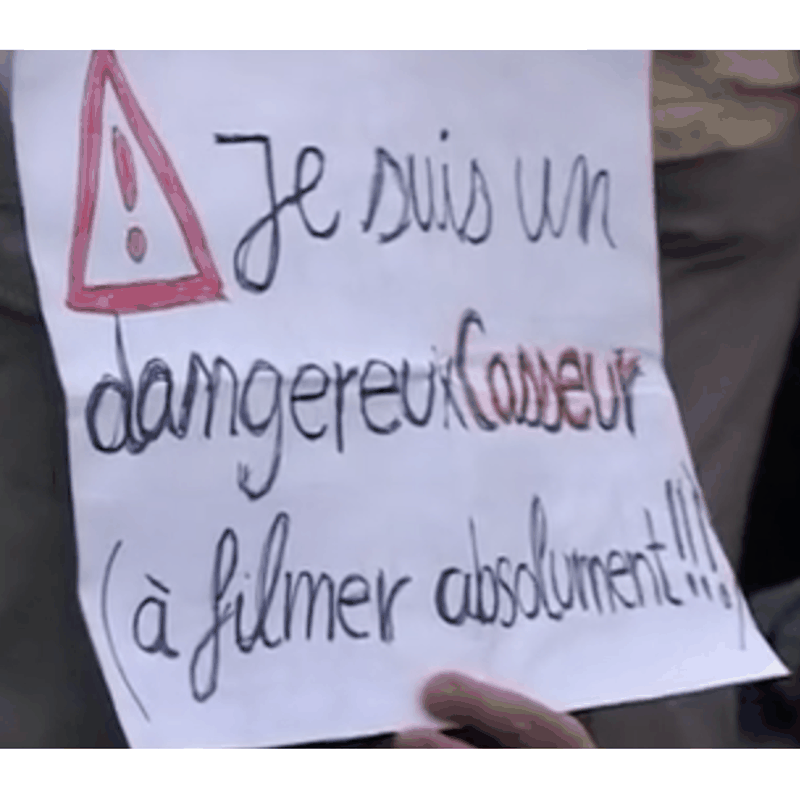 Je suis un
dangereux Casseur
(à filmer absolument!!!)